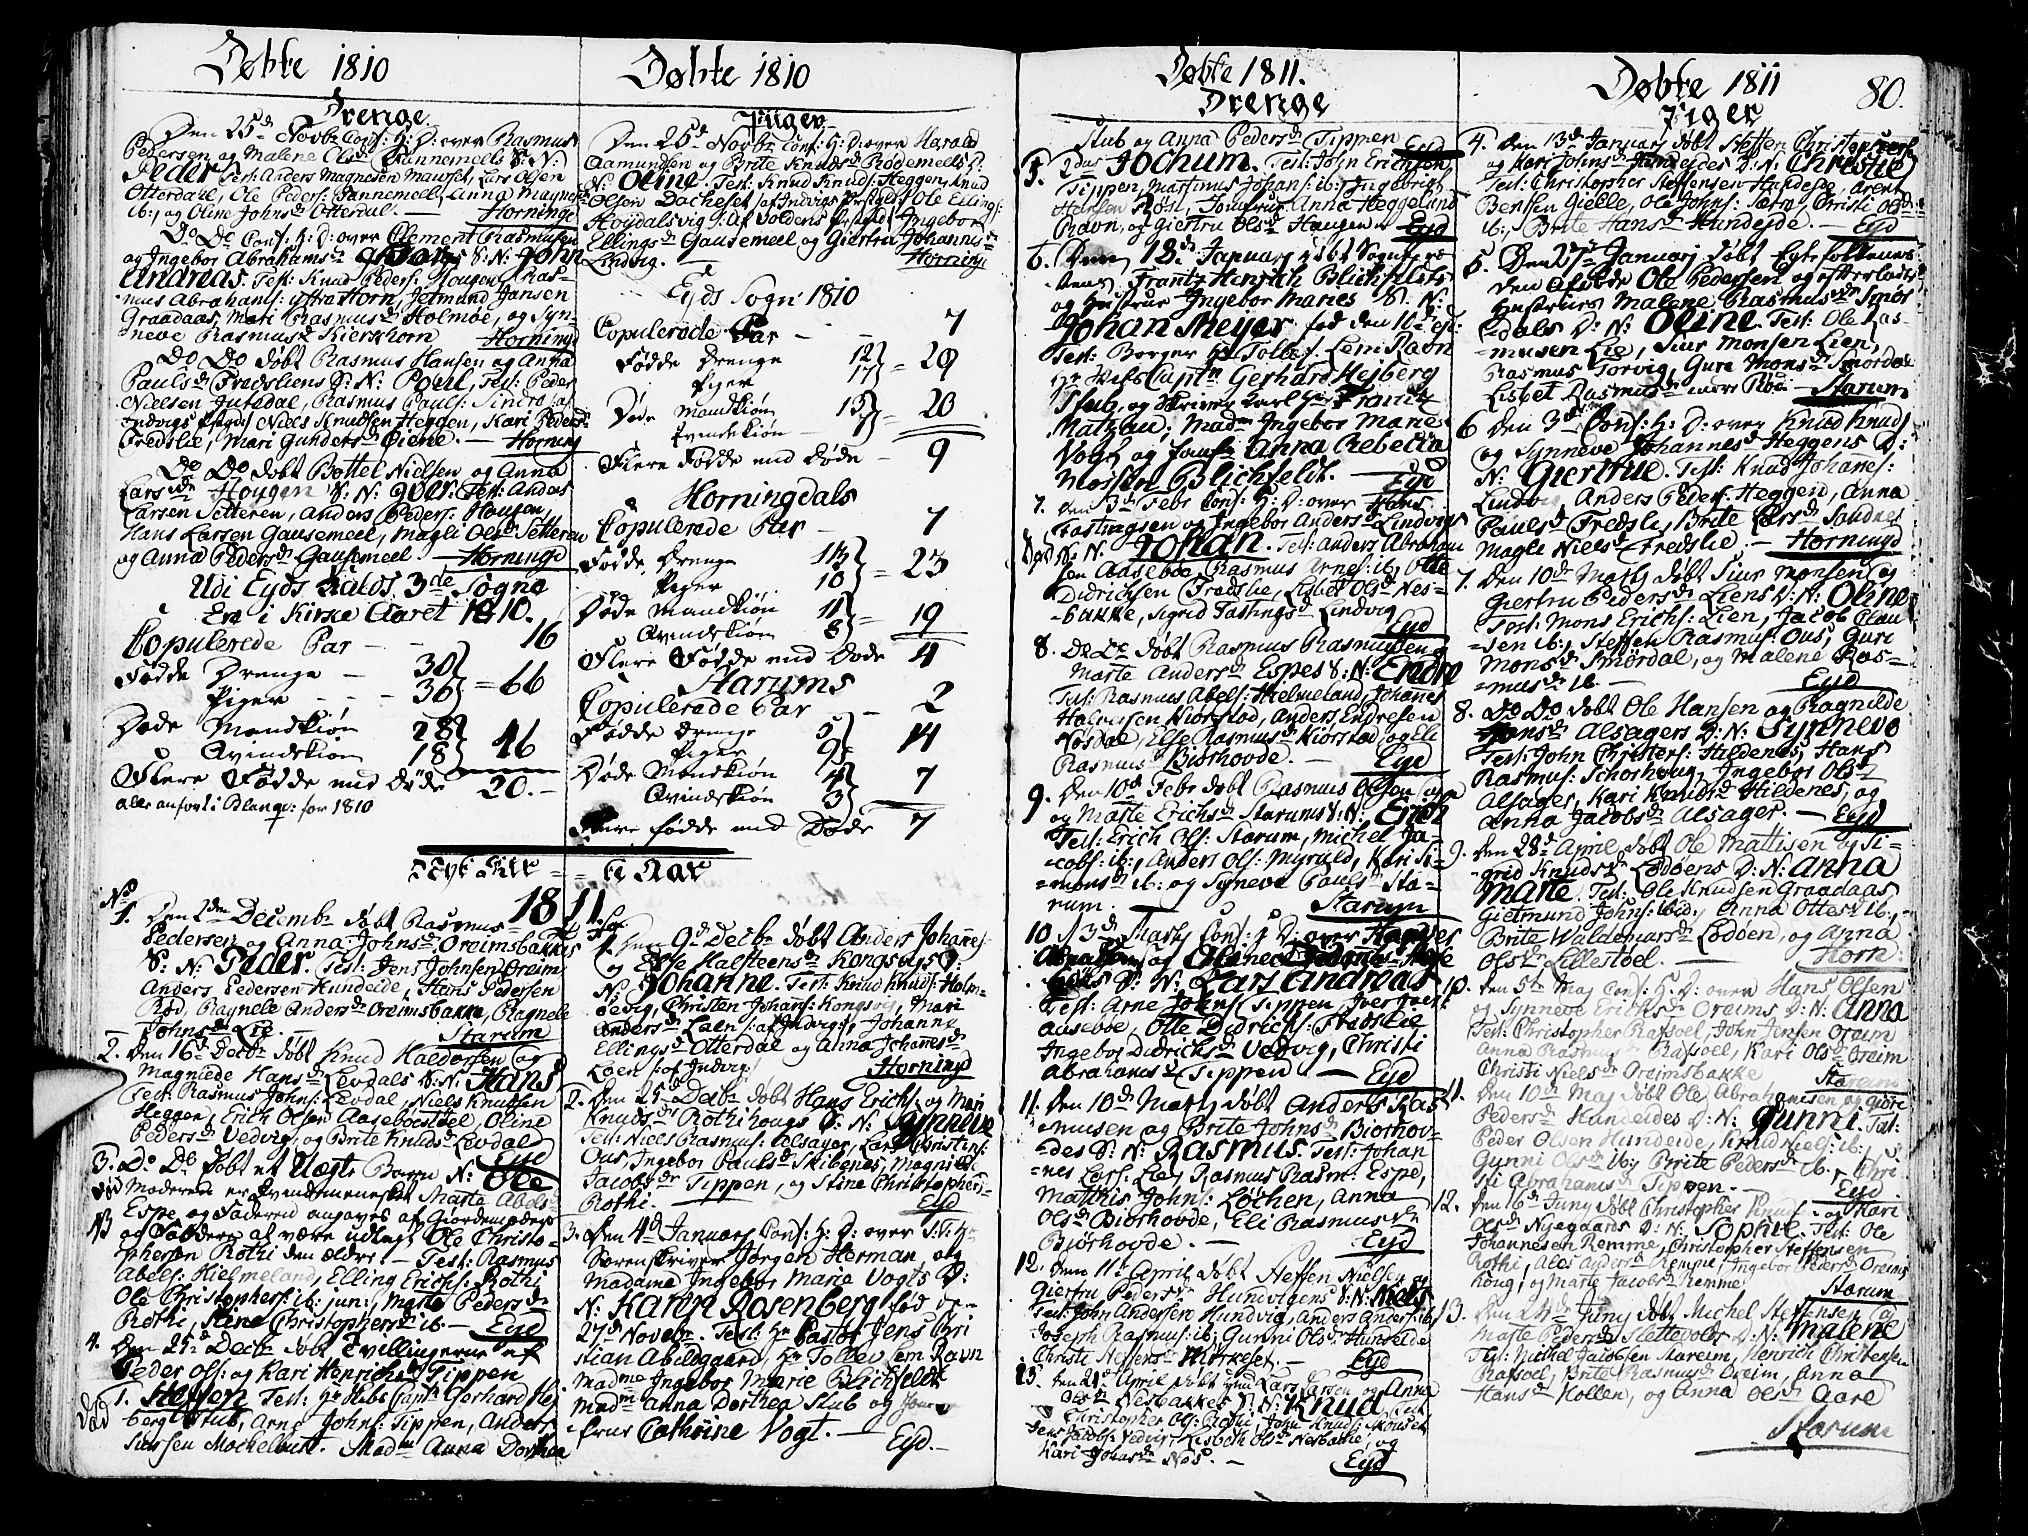 Døbte 1810
Drenge.
Den 25d Novbr Conf: H: D: over Rasmus
Pedersen og Malene Olsd Tannemeels S: N:
Peder Test: Anders Magnesen Maurset, Lars Olsen
Otterdahl, Ole Peders: Tannemeel, Anna Magnesd
ib:, og Oline Johnsd Otterdal. — Horningd
Do Do Conf: H: D: over Clement Rasmusen
og Ingebor Abrahamsd S: N: John
Andreas. Test: Knud Peders: Hougen, Ras-
mus Abrahams: yttre Horn, Jetmund Jansen
Graadaas, Mari Rasmusd Holmøe, og Syn-
neve Rasmusd Kierkhorn Horningd
Do Do døbt Rasmus Hansen og Anna
Paulsd Fredsliens S: N: Poul, Test: Peder
Nielsen Jutedal, Rasmus Pauls: Sindre /af
Indvigs Pstgd/ Niels Knudsen Heggen, Kari Pedersd
Fredslie, Mari Gundersd Øiene. — Horning
Do Do døbt Bottel Nielsen og Anna
Larsdr Hougen S: N: Test: Anders
Larsen Setteren, Anders Peders: Hougen,
Hans Larsen Gausemeel, Magli Olsd Setteren
og Anna Pedersd Gausemeel. — Horningd
Udi Eyds Kalds 3de Sogne
Ere i Kirke Aaret 1810.
Copulerede Par — 16
Fødde Drenge — 30
Piger — 36 } = 66
Døde Mandkiøn 28
Qvindekiøn 18 } 46
Flere Fødde end døde 20.—
alle anført i for 1810
Døbte 1810
Piger
Den 25d Novbr Conf: H: D: over Harald
Aamundsen og Brite Knudsd Rødemeels D:
N: Oline. Test: Knud Knuds: Heggen, Knud
Olsen Dacheset /af Indvigs Pstgld/ Ole Ellings:
Høydalsvig /: Af Voldens Pstgld/ Ingebor
Ellingsd Gausemeel og Giertru Johannisd
Lindvig. — Horning
Eyds Sogn 1810
Copulerede Par — 7
Fødde Drenge 12
Piger 17 } = 29
Døde Mandkiøn 13
Qvindekiøn 7 } = 20
Flere Fødde end Døde — 9
Horningdals
Copulerede Par — 7
Fødde Drenge 13
Piger 10 } = 23
Døde Mandkiøn 11
Qvindekiøn 8 } = 19
Flere Fødde end Døde 4
Starums
Copulerede Par — 2
Fødde drenge 5
Piger 9 } = 14
Døde Mandkiøn 4
Qvindekiøn 3 } 7
Flere fødde end Døde 7
Nyt Kir = = ke Aar
1811.
No
1. Den 2den Decembr døbt Rasmus
Pedersen og Anna Johnsd Oreimsbakkes
S: N: Peder. Test: Jens Johnsen Oreim
Anders Pedersen Hundeide, Hans Pedersen
Rød, Ragnele Andersd Oreimsbakke, Ragnele
Johnsd Lie. — Starum
2. Den 16d Decbr døbt Knud Haldorsen og
Magnilde Hansd Levdals S: N: Hans
Test: Rasmus Johns: Levdal, Niels Knudsen
Heggen, Erich Olsen Aasebøestøel, Oline
Pedersd Vedvig, og Brite Knudsd Levdal
Eyd
3. Do Do døbt et Uægte Barn N: Ole
Moderen er Qvindemenesket Marte Abelsd
Espe og Faderen angaves af Giordemoderen
og Fadderne at være udlagt Ole Christo-
phersen Rothi den ældre. — Test: Rasmus
Abels: Hielmeland, Elling Erichs: Rothi
Ole Christophers: ib: jun:, Marte Pedersd
Rothi, Stine Christophersd ib — Eyd
4. Den 25d Decbr døbt Tvillingerne af
Peder Ols: og Kari Henrichsd Tippen
Død 1. Steffen Test: Hr Captn Gerhard Hej
berg Stub, Arne Johns: Tippen, Anders
Siursen Mochelbust. Madm Anna Dorthea
1. Den 9d Decbr døbt Anders Johanes:
og Else Halsteensd Kongsvigs D:
N: Johanne. Test: Knud Knuds: Holm-
øevig, Christen Johans: Kongsvig, Mari
Andersd Loen /: af Indvigs/, Johanne
Ellingsd Otterdal og Anna Johannesd
Loen /: af Indvig/ Horningd
2. Den 25d Decbr døbt Hans Erichs: og Mari
Knudsdr Rothihougs D: N: Synneve
Test: Niels Rasmus: Alsager, Lars Christens:
Ous, Ingebor Paulsd Skibenes, Magnilde
Jacobsdr Tippen, og Stine Christophersd
Rothi. — Eyd
3. Den 4d Januarj Conf: H: D: over S:T: Hr
Sorenskriver Jørgen Herman og
Madame Ingebor Marie Vogts D:
N: Karen Rosenberg fød den
27d Novebr. Test: Hr Pastor Jens Chri
stian Abildgaard, Hr Tollev sen Ravn
Madme Ingebor Marie Blichfeldt
Madm Anna Dorthea Stub og Jom
frue Cathrine Vogt. —
Eyd.—
Døbte 1811.
Drenge
Stub og Anna Pedersd Tippen Eyd
5. 2das Jochum. Test: John Erichsen
Tippen, Martinus Johans: ib:, Ingebrigt
Hansen Røsi, Jomfrue Anna Heggelund
Ravn, og Giertru Olsd Haugen — Eyd
6. Den 18de Januarj døbt Fogn
Frantz Henrich Blichfeldts
og Hustrue Ingebor Maries S. N:
Johan Meyer fød den 10de ej:
Test: Borger Hr Tolles Lem Ravn
Hr Captn Gerhard Hejberg
Stub, og Hr Frantz
Matzau; Madm Ingebor Marie
Vogt og Jomf: Anna Rebecca
Blichfeldt. — Eyd
7. Den 3d Febr Conf: H: D: over Hans
Fastingsen og Ingebor Andersd Lindvigs
Død S: N: Johan. Test: Anders Abraham
sen Aasebøe, Rasmus Arnes: ib:, Otte
Didrichsen Fredslie, Lisbet Olsd Nes-
bakke, Sigrid Fastingsd Lindvig
Eyd
8. Do Do døbt Rasmus Rasmusen og
Marte Andersd Espes S: N: Endre
Test: Rasmus Abels: Hielmeland, Johanes
Halvorsen Kiørstød, Anders Endresen
Nøsdal, Else Rasmusd Kiørstød, og Eli
Rasmusd Biørhovde. — Eyd
9. Den 10d Febr døbt Rasmus Olsen
og Marte Erichsd Starums S: N: Erich
Test: Erich Ols: Starum, Michel Ja-
cobs: ib:, Anders Ols: Myrold, Kari Si-
monsd ib: og Syneve Paulsd Sta-
rum. — Starum
10. d 3d Martj Conf: H: D: over
S: N: Lars Andreas
Test: Arne Johns: Tippen, Iver
Aasebøe, Otte Didrichs: Fredslie
Ingebor Didrichsd Vedvig, Christi
Abrahamsd Tippen — Eyd
11. Den 10d Martj døbt Anders Ras
musen og Brite Johnsd Biørhov-
des S: N: Rasmus. Test: Johan-
nes Lars: Lie, Rasmus Rasm: Espe,
Matthis Johns: Løthen, Anna
Olsd Biørhovde, Eli Rasmusdr
Biørhovde. — Eyd
12. Den 11te April døbt Steffen Nielsen og
Giertru Pedersd Hundvigens S: N: Niels
Test: John Andersen Hundvig, Anders Anders: ib:
Joseph Rasmus: ib:, Gunni Olsd Hundeide
Christi Steffensd Mørkeset. — Eyd
13. Den 21de April døbt Lars Larsen og Anna
Olsd Nesbakkes S: N: Knud, Test
Christopher Ols: Rothi, John Knuds: Skonset
Jens Jacobs: Vedvig, Lisbeth Olsd Nesbakke, og
Kari Johnsd Nøs. — Eyd
Døbte 1811
80.
Piger
4. Den 13d Januarj døbt Steffen Christophers:
og Kari Johnsd Hundejdes D: N: Christie
Test: Christopher Steffensen Hundeide, Arent
Bentsen Gielle, Ole Johns: Sætre, Christi Olsd
ib:, Brite Hansd Hundejde. — Eyd
5. Den 27de Januarj døbt Egtefolkenes
den afdøde Ole Pedersen og efterladte
Hustrues Malene Rasmusd Smør
dals D: N: Oline. Test: Ole Ras-
musen Lie, Siur Monsen Lien,
Rasmus Torvig, Gure Monsd Smørdal
Lisbet Rasmusd Rød — Starum
6 Den 3d Conf: H: D: over Knud Knuds
og Synneve Johannesd Heggens D:
N: Giertrue. Test: Knud Johanes:
Lindvig Anders Peders: Heggen, Anna
Paulsd Fredsli, Brite Larsd Sandnes
Magle Nielsd Fredslie. — Horningd
7. Den 10de Martj døbt Siur Monsen og
Giertru Pedersd Liens D: N: Oline
Test: Mons Erichs: Lien, Jacob Clau
sen ib:, Steffen Rasmus: Ous, Guri
Monsd Smørdal, og Malene Ras-
musd ib. — Eyd
8. Do Do døbt Ole Hansen og Ragnilde
Hansd Alsagers D: N: Synneve
Test: John Christens: Hildenes, Hans
Rasmus: Schorhoug, Ingebor Olsd
Alsager, Kari Knudsd Hildenes, og
Anna Jacobsd Alsager. — Eyd
9. Den 28d April døbt Ole Mattisen og Si-
grid Knudsd Lødøens D: N: Anna
Marte. Test: Ole Knudsen Graadaas
Gietmund Johns: ibid:, Anna Ottesd ib:,
Brite Waldemarsd Lødøen, og Anna
Olsdr Lillestøel. — Horn:
10. Den 5te Maj Conf: H: D: over Hans Olsen
og Synneve Erichsd Oreims D: N: Anna
Test: Christopher Rafsoel, John Jensen Oreim
Anna Rasmusd Rafsoel, Kari Olsd Oreim
Christi Nielsd Oreimsbakke Starum
11. Den 10d Maj døbt Ole Abrahamsen og Giøre
Pedersd Hundeides D: N: Gunni. Test:
Peder Olsen Hundeide, Knud Niels: ib:
Gunni Olsd ib:, Brite Pedersd ib:, Chri
sti Abrahamsd Tippen. — Eyd
12. Den 16d Junj døbt Christopher Knuds: og Kari
Olsd Nyegaards D: N: Sophie. Test: Ole
Johannesen Remme, Christopher Steffensen
Rothi, Ales Andersd Remme, Ingebor Pedersd Oreims
houg, og Marte Jacobsd Remme Starum
13. Den 24de Junj døbt Michel Steffensen og
Marte Pedersd Slettevolds D: N: Malene
Test: Michel Jacobsen Mareim, Henrich Christensen
Rafsoel, Brite Rasmusd Oreim, Anna
Hansd Kollen, og Anna Olsd Aare
Starum